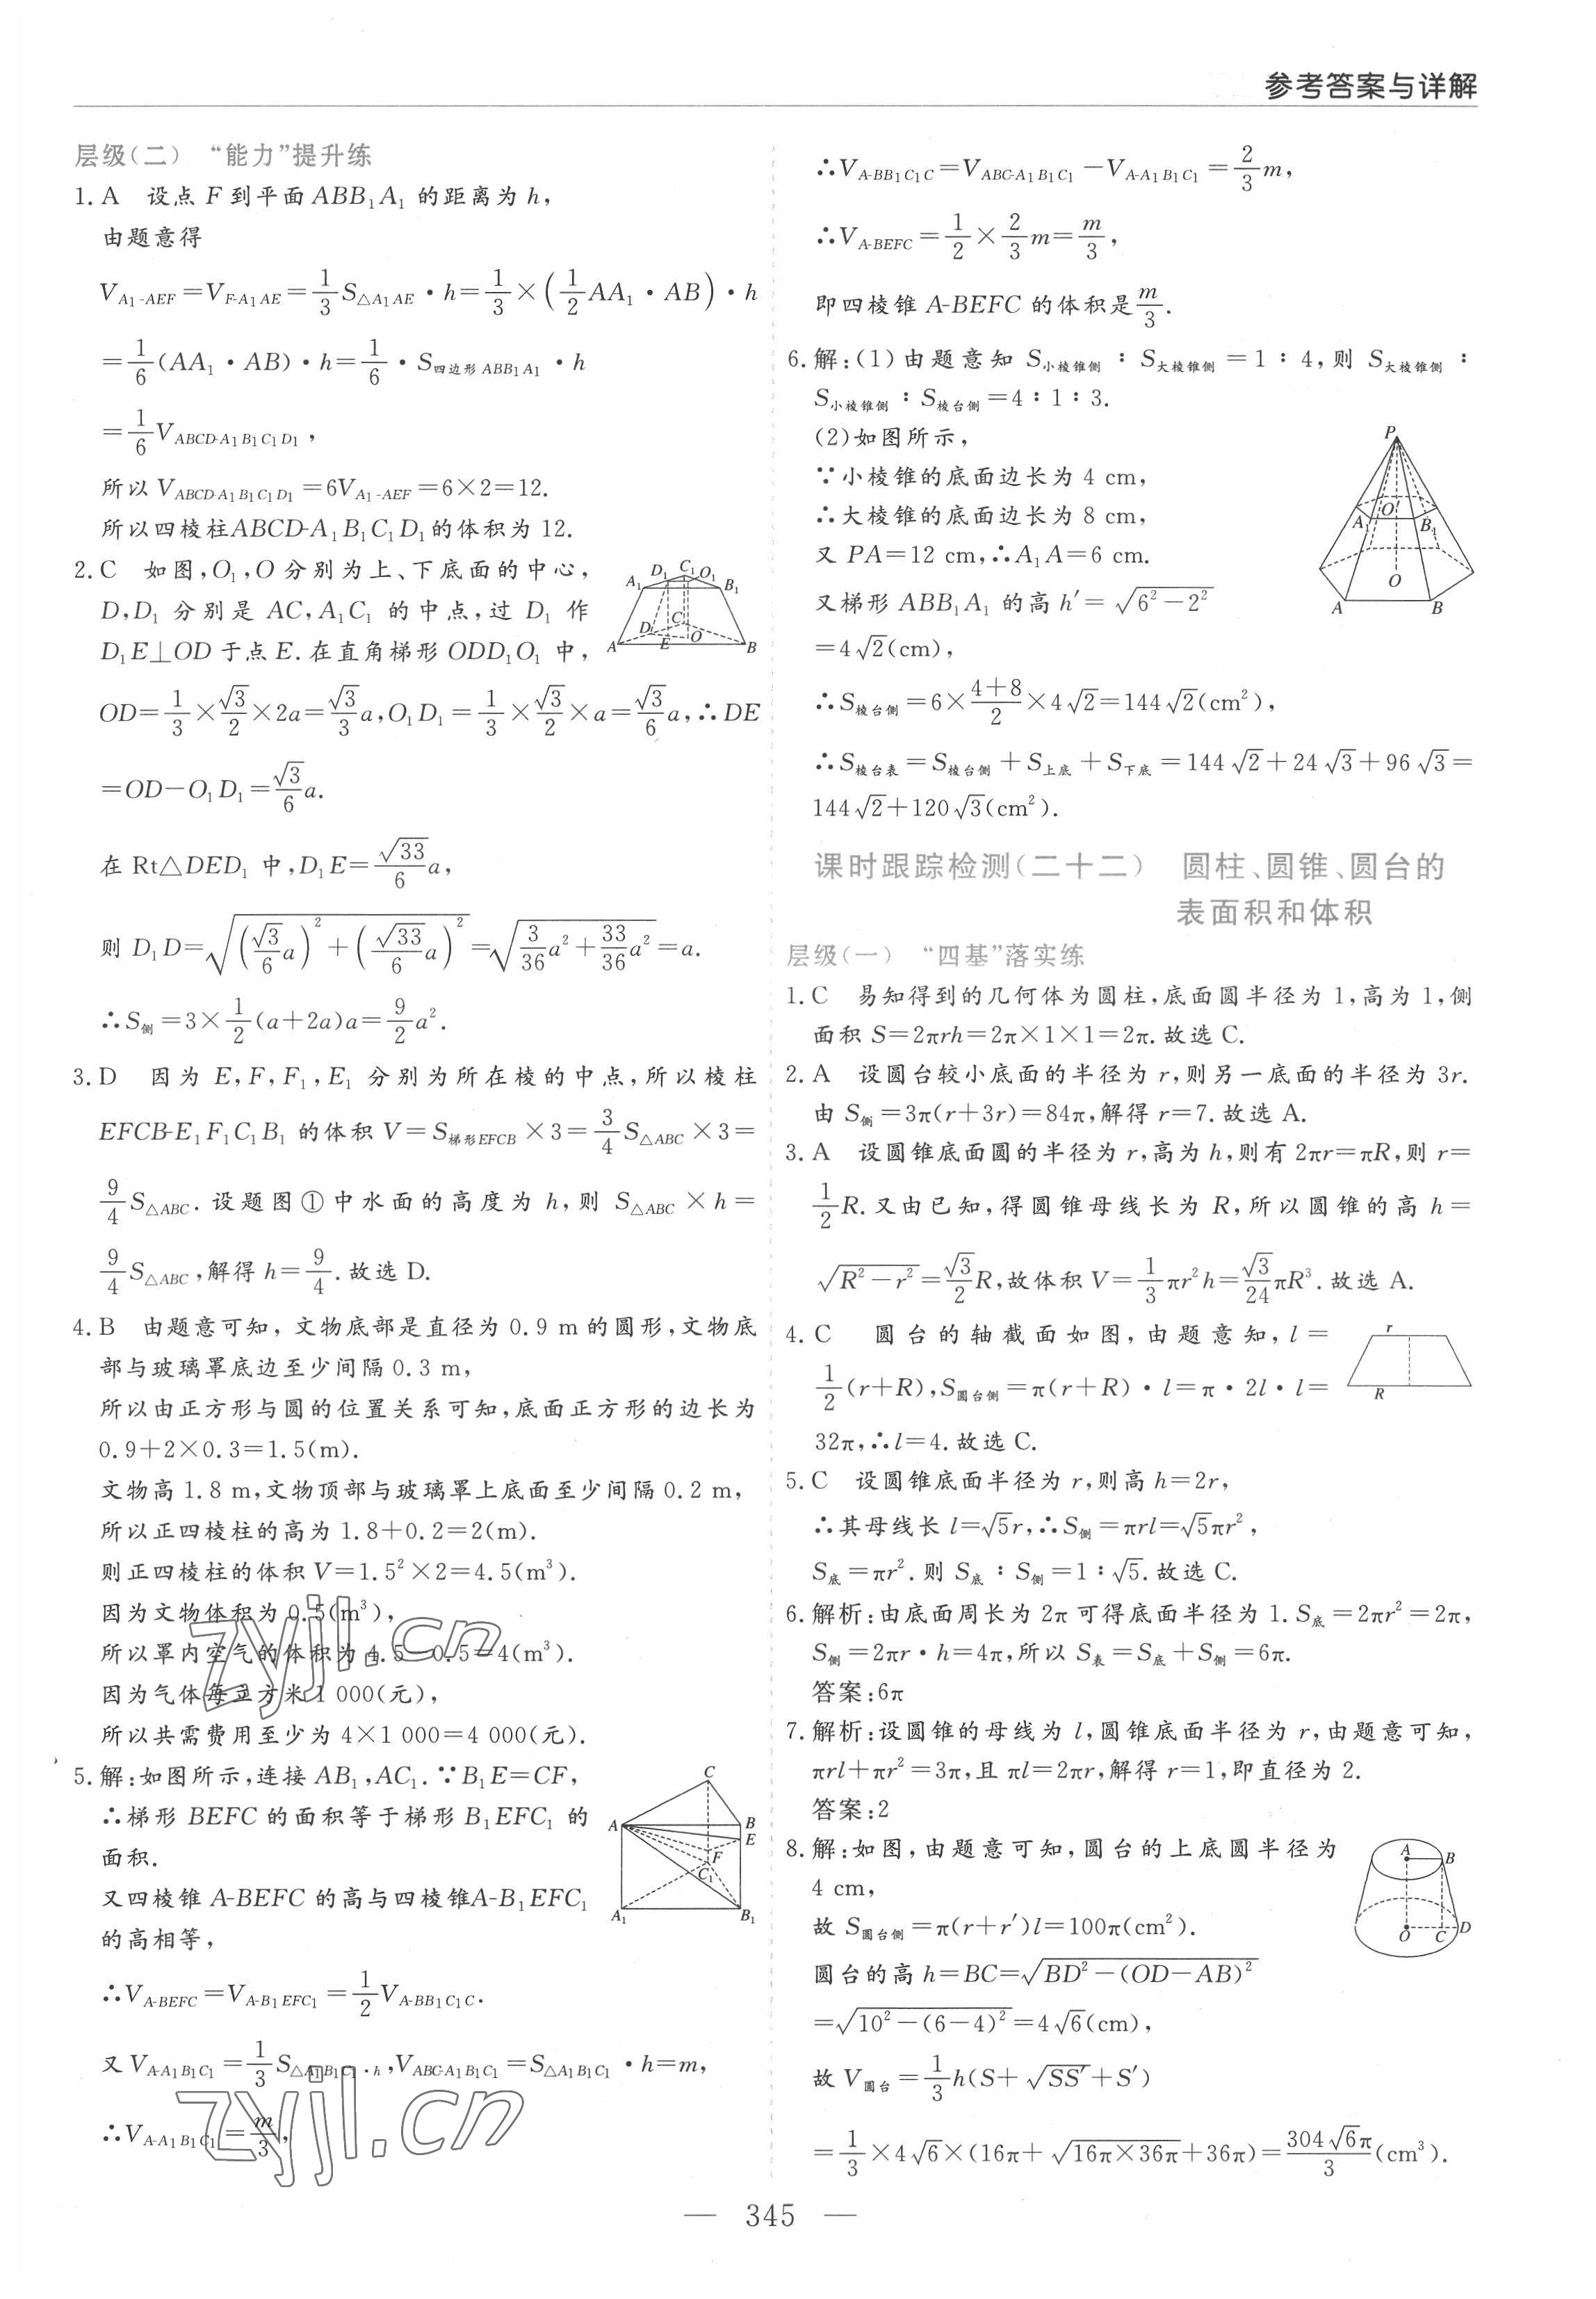 参考答案与详解
层级(二) “能力”提升练
1. A 设点 F 到平面 ABB₁A₁ 的距离为 h,
由题意得
V_{A₁-AEF}=V_{F-A₁AE}=1/3 S_{△A₁AE}·h=1/3×(1/2 AA₁·AB)·h
=1/6(AA₁·AB)·h=1/6·S_{四边形ABB₁A₁}·h
=1/6 V_{ABCD-A₁B₁C₁D₁},
所以 V_{ABCD-A₁B₁C₁D₁}=6V_{A₁-AEF}=6×2=12.
所以四棱柱ABCD-A₁B₁C₁D₁的体积为 12.
2. C 如图,O₁,O 分别为上、下底面的中心,
D,D₁ 分别是 AC,A₁C₁ 的中点,过 D₁ 作
D₁E⊥OD 于点 E.在直角梯形 ODD₁O₁ 中,
OD=1/3×√3/2×2a=√3/3 a,O₁D₁=1/3×√3/2×a=√3/6 a,∴DE
=OD-O₁D₁=√3/6 a.
在 Rt△DED₁ 中,D₁E=√33/6 a,
则 D₁D=√((√3/6 a)²+(√33/6 a)²)=√(3/36 a²+33/36 a²)=a.
∴S_侧=3×1/2(a+2a)a=9/2 a².
A₁ D₁ C₁ O₁ B₁ D C A E O B
3. D 因为 E,F,F₁,E₁ 分别为所在棱的中点,所以棱柱
EFCB-E₁F₁C₁B₁ 的体积 V=S_{梯形EFCB}×3=3/4 S_{△ABC}×3=
9/4 S_{△ABC}.设题图①中水面的高度为 h,则 S_{△ABC}×h=
9/4 S_{△ABC},解得 h=9/4.故选 D.
4. B 由题意可知,文物底部是直径为 0.9 m 的圆形,文物底
部与玻璃罩底边至少间隔 0.3 m,
所以由正方形与圆的位置关系可知,底面正方形的边长为
0.9+2×0.3=1.5(m).
文物高 1.8 m,文物顶部与玻璃罩上底面至少间隔 0.2 m,
所以正四棱柱的高为 1.8+0.2=2(m).
则正四棱柱的体积 V=1.5²×2=4.5(m³).
因为文物体积为 0.5(m³),
所以罩内空气的体积为 4.5-0.5=4(m³).
因为气体每立方米 1 000(元),
所以共需费用至少为 4×1 000=4 000(元).
zyjl.cn
5. 解:如图所示,连接 AB₁,AC₁.∵B₁E=CF,
∴梯形 BEFC 的面积等于梯形 B₁EFC₁ 的
面积.
又四棱锥 A-BEFC 的高与四棱锥A-B₁EFC₁
的高相等,
∴V_{A-BEFC}=V_{A-B₁EFC₁}=1/2 V_{A-BB₁C₁C}.
又 V_{A-A₁B₁C₁}=1/3 S_{△A₁B₁C₁}·h,V_{ABC-A₁B₁C₁}=S_{△A₁B₁C₁}·h=m,
∴V_{A-A₁B₁C₁}=m/3,
C A B E F C₁ A₁ B₁
zyjl.cn
∴V_{A-BB₁C₁C}=V_{ABC-A₁B₁C₁}-V_{A-A₁B₁C₁}=2/3 m,
∴V_{A-BEFC}=1/2×2/3 m=m/3,
即四棱锥 A-BEFC 的体积是 m/3.
6. 解:(1)由题意知 S_{小棱锥侧}∶S_{大棱锥侧}=1∶4,则 S_{大棱锥侧}∶
S_{小棱锥侧}∶S_{棱台侧}=4∶1∶3.
(2)如图所示,
∵小棱锥的底面边长为 4 cm,
∴大棱锥的底面边长为 8 cm,
又 PA=12 cm,∴A₁A=6 cm.
又梯形 ABB₁A₁ 的高 h′=√(6²-2²)
=4√2(cm),
∴S_{棱台侧}=6×(4+8)/2×4√2=144√2(cm²),
∴S_{棱台表}=S_{棱台侧}+S_{上底}+S_{下底}=144√2+24√3+96√3=
144√2+120√3(cm²).
P A₁ O′ B₁ O A B
课时跟踪检测(二十二) 圆柱、圆锥、圆台的
表面积和体积
层级(一) “四基”落实练
1. C 易知得到的几何体为圆柱,底面圆半径为 1,高为 1,侧
面积 S=2πrh=2π×1×1=2π.故选 C.
2. A 设圆台较小底面的半径为 r,则另一底面的半径为 3r.
由 S_侧=3π(r+3r)=84π,解得 r=7.故选 A.
3. A 设圆锥底面圆的半径为 r,高为 h,则有 2πr=πR,则 r=
1/2 R.又由已知,得圆锥母线长为 R,所以圆锥的高 h=
√(R²-r²)=√3/2 R,故体积 V=1/3 πr²h=√3/24 πR³.故选 A.
4. C 圆台的轴截面如图,由题意知,l=
1/2(r+R),S_{圆台侧}=π(r+R)·l=π·2l·l=
32π,∴l=4.故选 C.
r R
5. C 设圆锥底面半径为 r,则高 h=2r,
∴其母线长 l=√5r,∴S_侧=πrl=√5πr²,
S_底=πr².则 S_底∶S_侧=1∶√5.故选 C.
6. 解析:由底面周长为 2π 可得底面半径为 1.S_底=2πr²=2π,
S_侧=2πr·h=4π,所以 S_表=S_底+S_侧=6π.
答案:6π
7. 解析:设圆锥的母线为 l,圆锥底面半径为 r,由题意可知,
πrl+πr²=3π,且 πl=2πr,解得 r=1,即直径为 2.
答案:2
8. 解:如图,由题意可知,圆台的上底圆半径为
4 cm,
故 S_{圆台侧}=π(r+r′)l=100π(cm²).
圆台的高 h=BC=√(BD²-(OD-AB)²)
=√(10²-(6-4)²)=4√6(cm),
故 V_{圆台}=1/3 h(S+√(SS′)+S′)
=1/3×4√6×(16π+√(16π×36π)+36π)=304√6π/3(cm³).
A B O C D
— 345 —